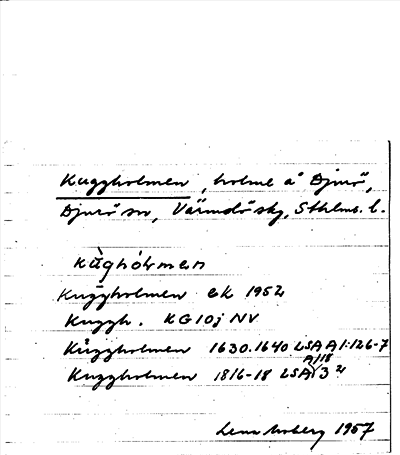 Kuggholmen, holme å Djurö,
Djurö sn, Värmdö skg, Sthlms. l.
kùghól̀men
Kuggholmen ek 1952
Kuggh. KG 10j NV
Kuggholmen 1630.1640 LSA A1:126-7
Kuggholmen 1816-18 LSA A118/3 21
1957